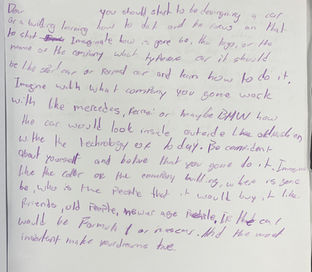 Dear you should start to be designing a car
or a willing learning how to do it and be focus on that
to start Imaginate how is gone be, the logo, or the
name or the company what type car it should
be like sport car or normal car and learn how to do it.
Imagine with what company you gone work
with like mercedes, Ferrari or maybe BMW how
the car would look inside outside like
with the technology of today. Be confident
about yourself and believe that you gone do it. Imagine
like the color or the company building, where is gone
be, who is the people that it would buy it like
friends, old people, age people, If the car
would be Formula 1 or nascar. And the most
important make your dreams true.